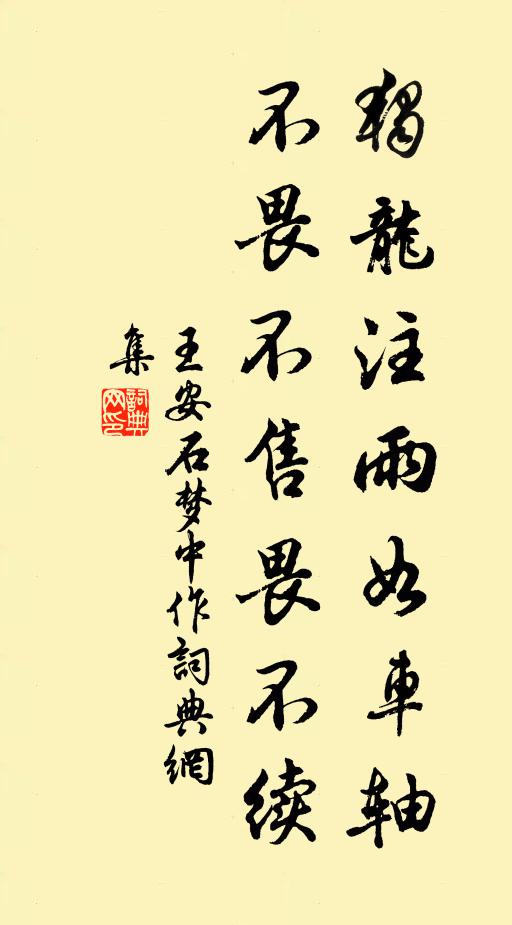 獨龍注雨如車軸
不畏不售畏不续
王安石梦中作詞典網
集
詞典
网印